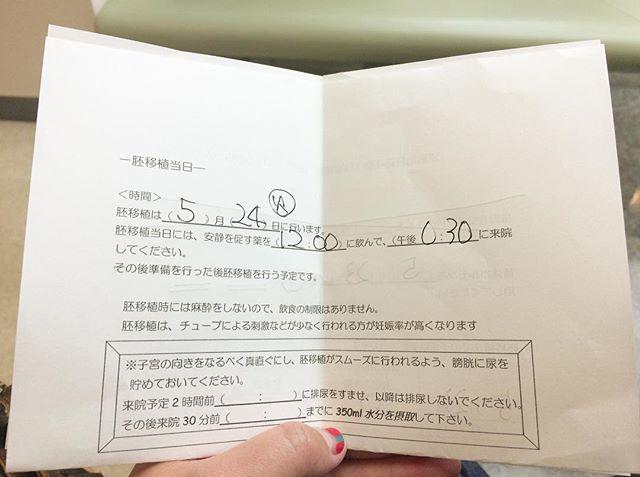 ―胚移植当日―
<時間>
胚移植は（ 5 ）月（ 24 ）日に行います。
胚移植当日には、安静を促す薬を（12：00）に飲んで、（午後 0：30 に来院
してください。
その後準備を行った後胚移植を行う予定です。
胚移植時には麻酔をしないので、飲食の制限はありません。
胚移植は、チューブによる刺激などが少なく行われる方が妊娠率が高くなります
※子宮の向きをなるべく真直ぐにし、胚移植がスムーズに行われるよう、膀胱に尿を
貯めておいてください。
来院予定2時間前（　：　）に排尿をすませ、以降は排尿しないでください。
その後来院30分前（　：　）までに350ml水分を摂取して下さい。